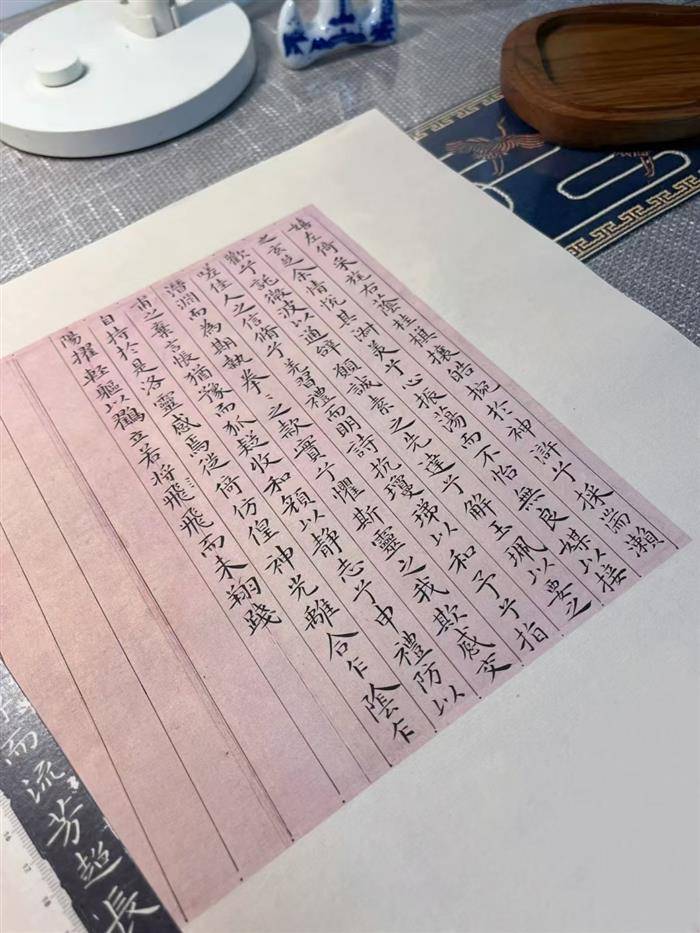 嬉左倚采旄右蔭桂棋攘皓捥於神滸兮採湍瀨
之玄芝余情悅其淑美兮心振蕩而不怡無良媒以接
歡兮託微波以通辭願誠素之先達兮解玉珮以要之
嗟佳人之信脩兮羌習禮而明詩抗瓊珶以和予兮指
潛淵而為期執拳〻之款實兮懼斯靈之我欺感交
甫之棄言悵猶豫而狐疑收和顏以静志兮申禮防以
自持於是洛靈感焉徙倚仿偟神光離合乍陰乍
陽擢輕軀以鶴立若将飛飛而未翔踐
而流芳超長